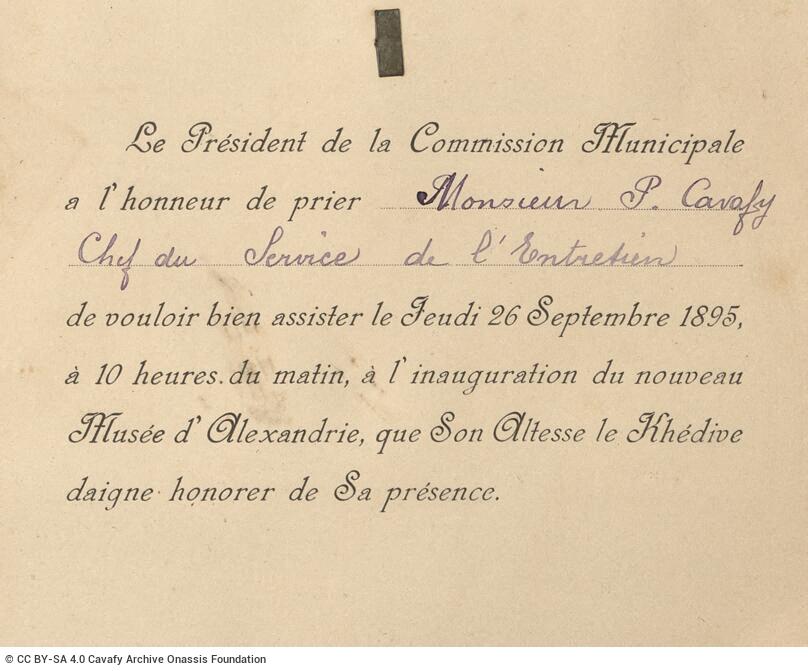 Le Président de la Commission Municipale
a l'honneur de prier Monsieur P. Cavafy
Chef du Service de l'Entretien
de vouloir bien assister le Jeudi 26 Septembre 1895,
à 10 heures du matin, à l'inauguration du nouveau
Musée d'Alexandrie, que Son Altesse le Khédive
daigne honorer de Sa présence.
© CC BY-SA 4.0 Cavafy Archive Onassis Foundation